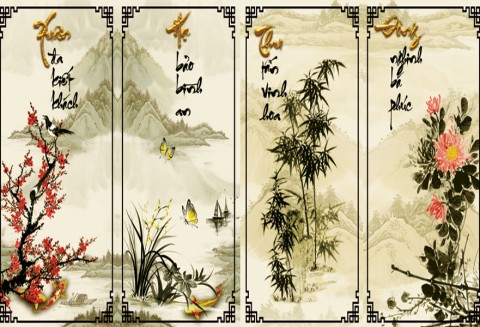 Xuân
đa
kiết
khách
Hạ
bảo
bình
an
Thu
tấn
vinh
hoa
Đông
nghinh
bá
phúc